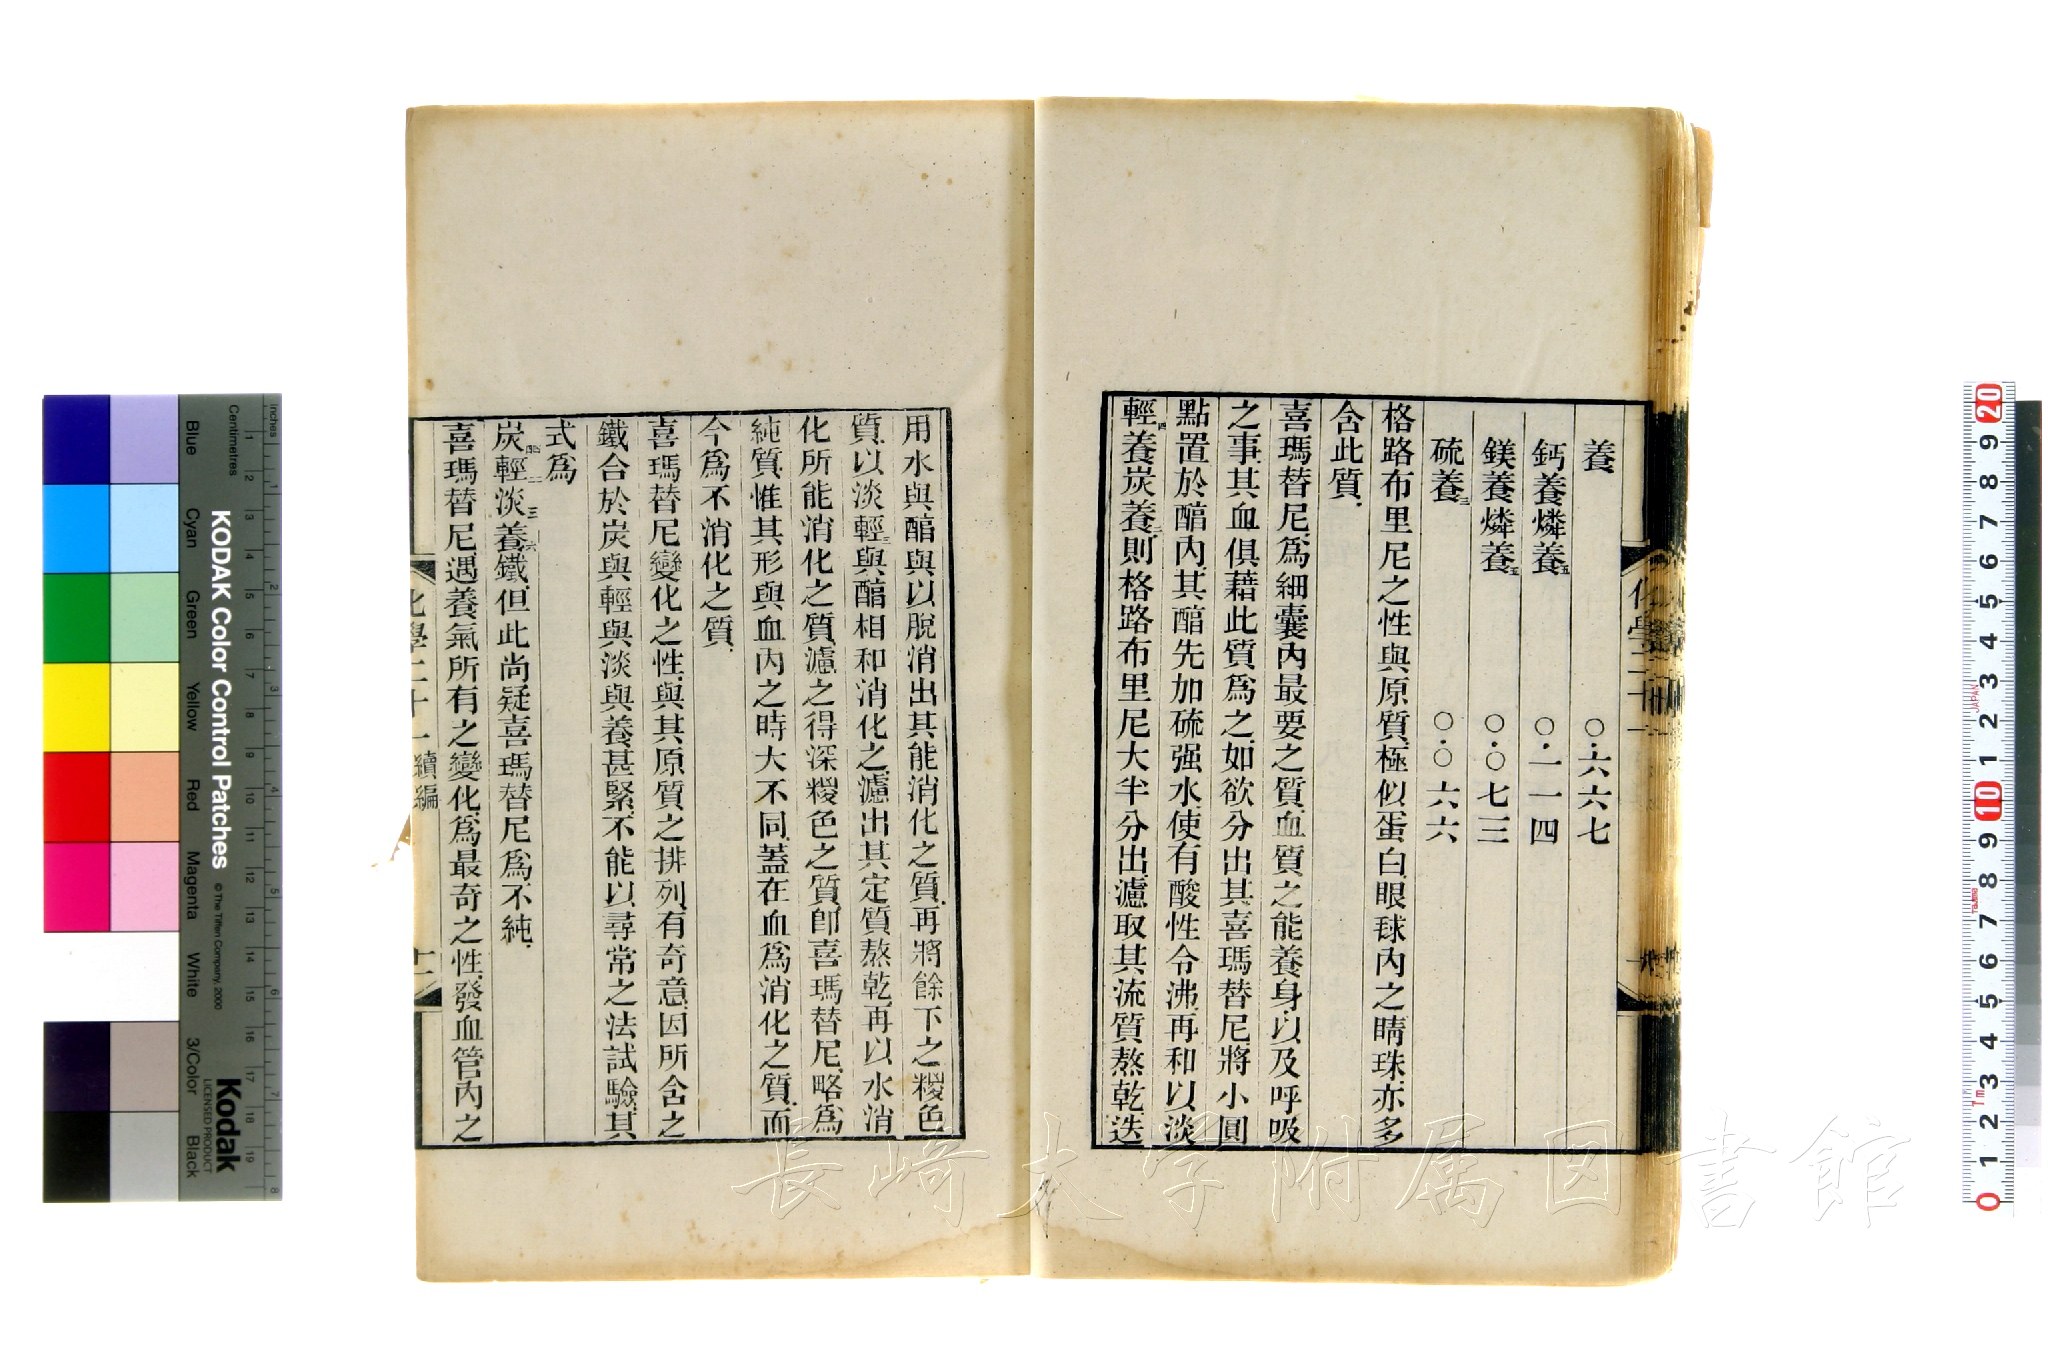 養　〇.六六七
鈣養燐養五　〇.一一四
鎂養燐養五　〇.〇七三
硫養三　〇.〇六六
格路布里尼之性與原質極似蛋白眼球內之睛珠亦多
含此質
喜瑪替尼爲細囊內最要之質血質之能養身以及呼吸
之事其血俱藉此質爲之如欲分出其喜瑪替尼將小圓
點置於醕內其醕先加硫强水使有酸性令沸再和以淡
輕四養炭養二則格路布里尼大半分出濾取其流質熬乾迭
用水與醕與以脫消出其能消化之質再將餘下之糭色
質以淡輕三與醕相和消化之濾出其定質熬乾再以水消
化所能消化之質濾之得深糭色之質卽喜瑪替尼略爲
純質惟其形與血內之時大不同蓋在血爲消化之質而
今爲不消化之質
喜瑪替尼變化之性與其原質之排列有奇意因所含之
鐵合於炭與輕與淡與養甚緊不能以尋常之法試驗其
式爲
炭四四輕二二淡三養六鐵但此尚疑喜瑪替尼爲不純
喜瑪替尼遇養氣所有之變化爲最奇之性發血管內之
化學二十一續編
十二
長崎大学附属図書館
KODAK Color Control Patches
© The Tiffen Company, 2000
Kodak
LICENSED PRODUCT
Inches
Centimetres
Blue
Cyan
Green
Yellow
Red
Magenta
White
3/Color
Black